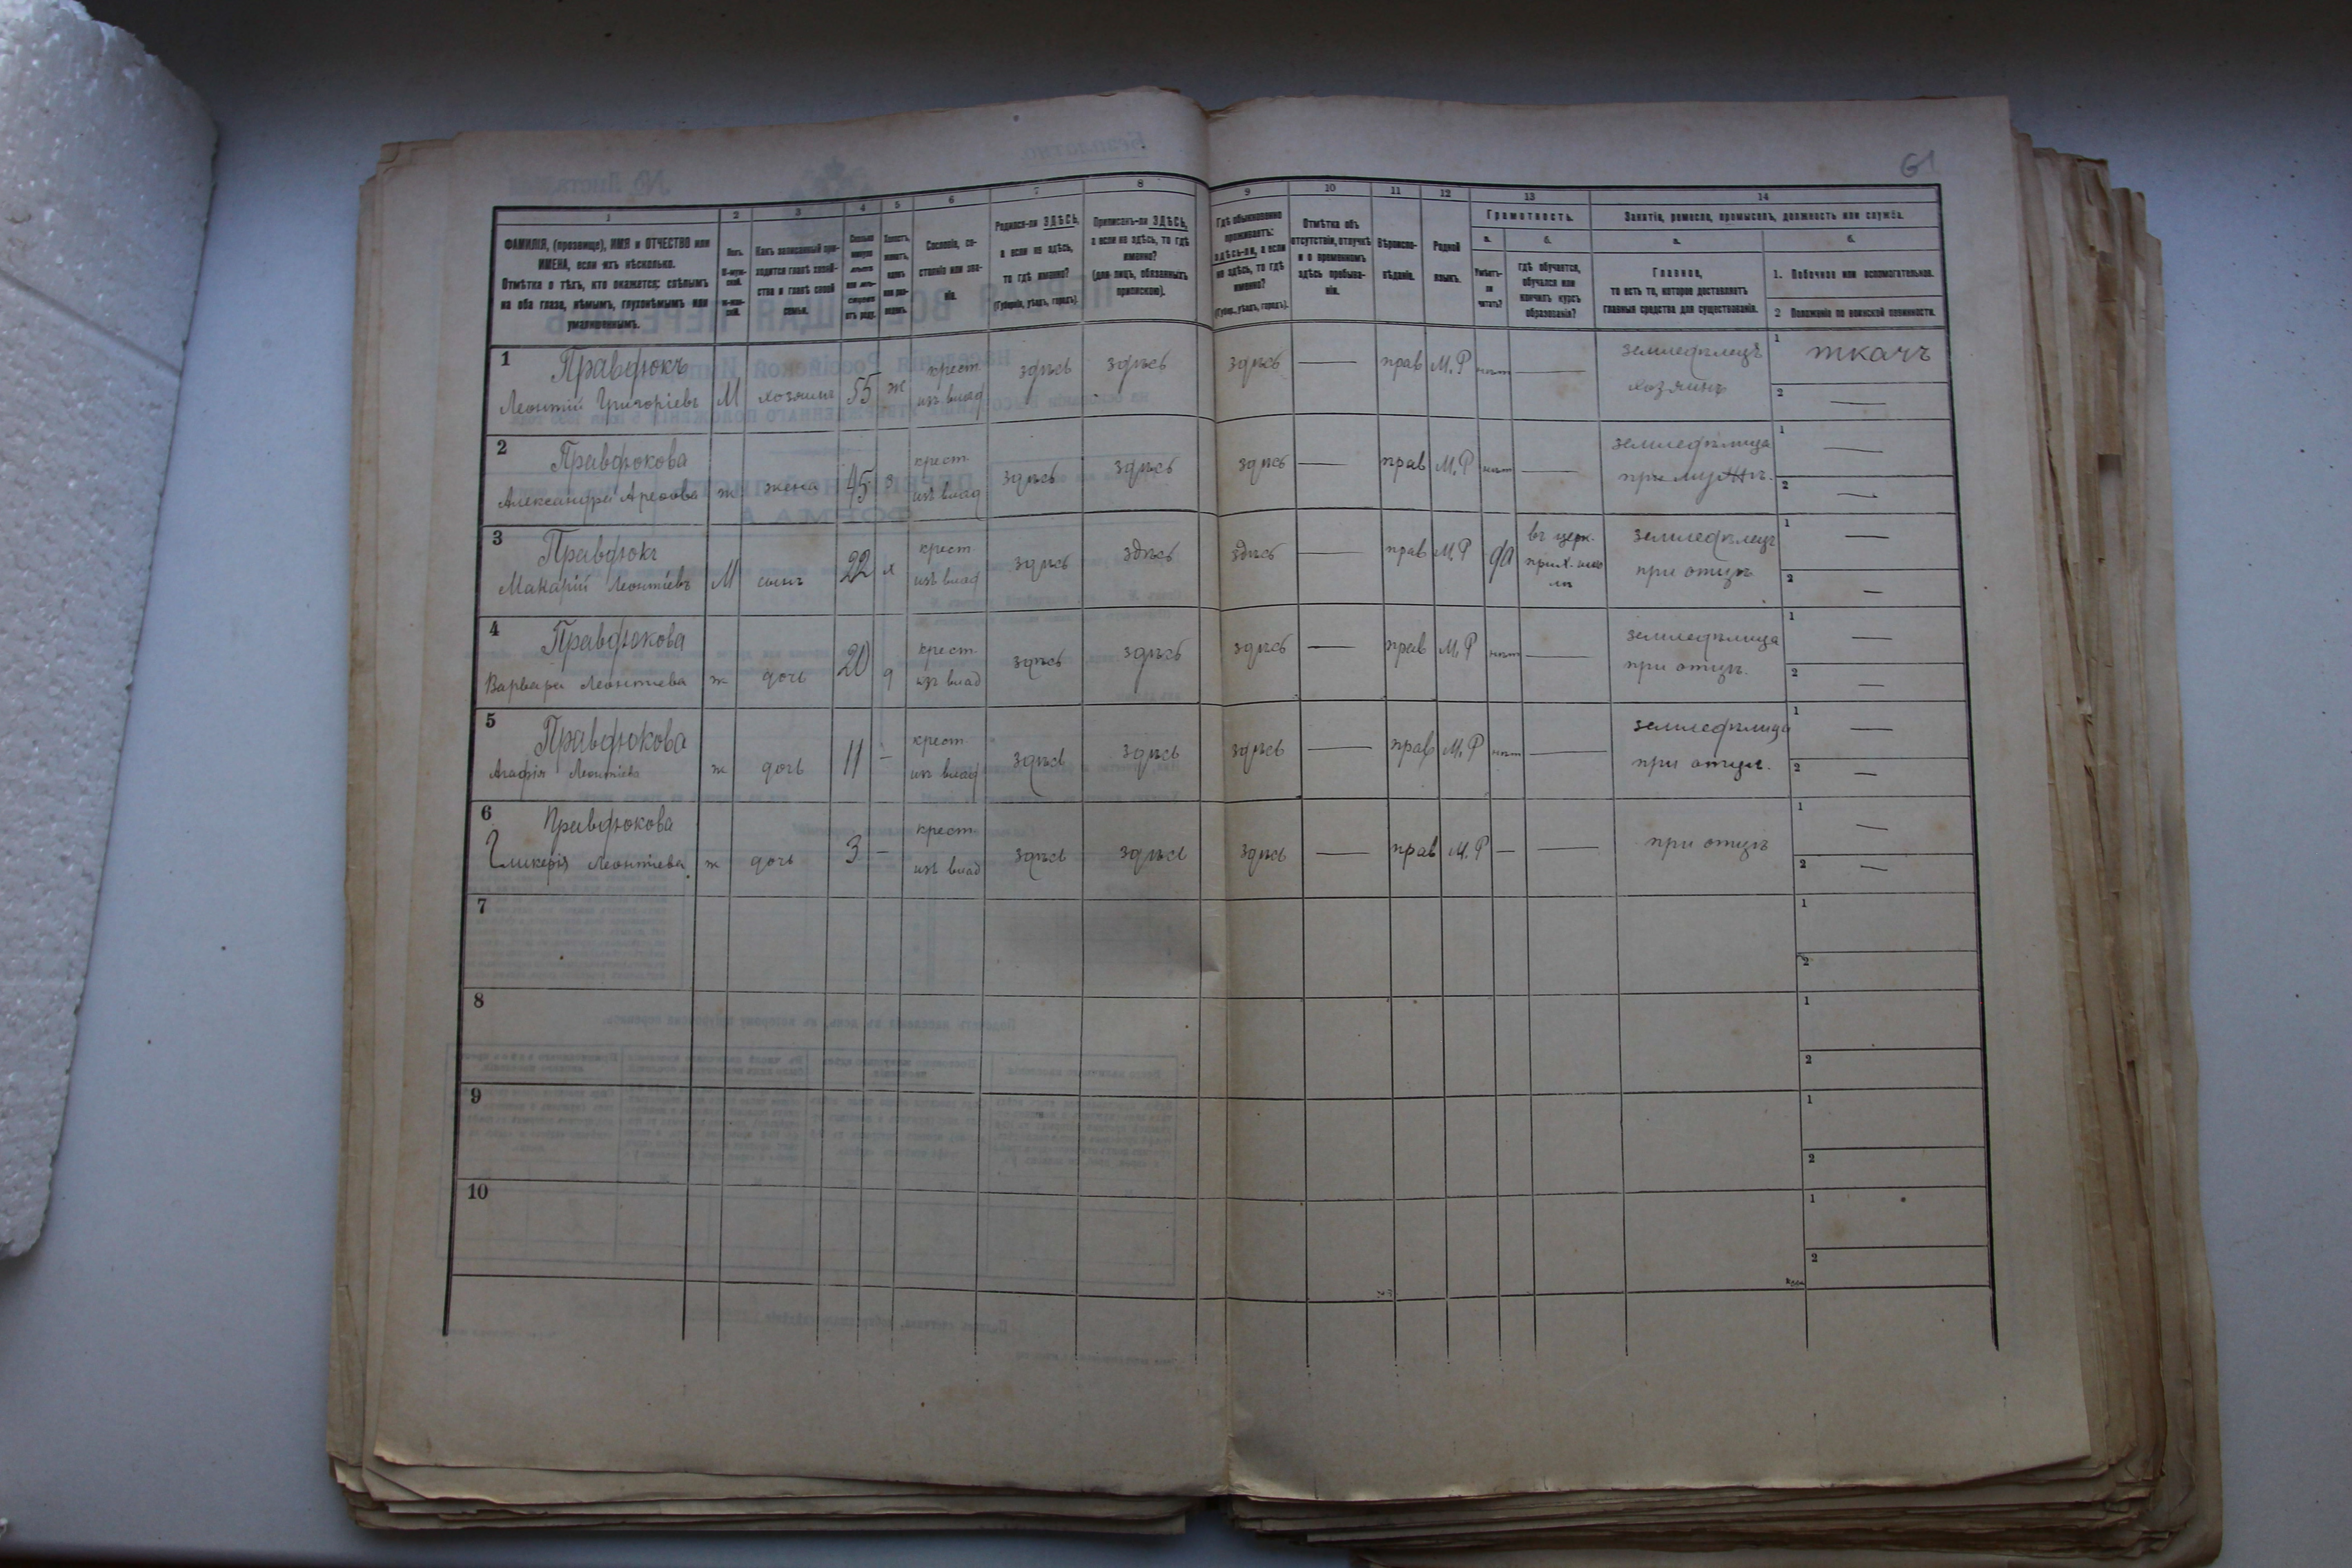 61
1 2 3 4 5 6 7 8 9 10 11 12 13 14
ФАМИЛІЯ, (прозвище), ИМЯ и ОТЧЕСТВО или
ИМЕНА, если ихъ нѣсколько.
Отмѣтка о тѣхъ, кто окажется: слѣпымъ
на оба глаза, нѣмымъ, глухонѣмымъ или
умалишеннымъ.
Полъ.
М-муж-
ской.
Ж-жен-
скій.
Какъ записанный при-
ходится главѣ хозяй-
ства и главѣ своей
семьи.
Сколько
минуло
лѣтъ
или мѣся-
цевъ
отъ роду.
Холостъ,
женатъ,
вдовъ
или раз-
веденъ.
Сословіе, со-
стояніе или зва-
ніе.
Родился-ли ЗДѢСЬ,
а если не здѣсь,
то гдѣ именно?
(Губернія, уѣздъ, городъ).
Приписанъ-ли ЗДѢСЬ,
а если не здѣсь, то гдѣ
именно?
(для лицъ, обязанныхъ
припискою).
Гдѣ обыкновенно
проживаетъ:
здѣсь-ли, а если
не здѣсь, то гдѣ
именно?
(Губер., уѣздъ, городъ).
Отмѣтка объ
отсутствіи, отлучкѣ
и о временномъ
здѣсь пребыва-
ніи.
Вѣроиспо-
вѣданіе.
Родной
языкъ.
Грамотность.
а.
Умѣетъ-
ли
читать?
б.
гдѣ обучается,
обучался или
кончилъ курсъ
образованія?
Занятіе, ремесло, промыселъ, должность или служба.
а.
Главное,
то есть то, которое доставляетъ
главныя средства для существованія.
б.
1. Побочное или вспомогательное.
2 Положеніе по воинской повинности.
1 Правдюкъ
Леонтій Григоріевъ М хозяинъ 55 ж крест. изъ влад здѣсь здѣсь здѣсь — прав М.Р нѣт — земледѣлецъ хозяинъ
1 ткачъ
2 —
2 Правдюкова
Александра ж жена 45 з крест. изъ влад здѣсь здѣсь здѣсь — прав М.Р нѣт — земледѣлица при мужѣ.
1 —
2 —
3 Правдюкъ
Макарій Леонтіевъ М сынъ 22 х крест изъ влад здѣсь здѣсь здѣсь — прав М.Р да въ церк. прих. шко лѣ земледѣлецъ при отцѣ
1 —
2 —
4 Правдюкова
Варвара Леонтіева ж дочь 20 д крест. изъ влад здѣсь здѣсь здѣсь — прав М.Р нѣт — земледѣлица при отцѣ.
1 —
2 —
5 Правдюкова
Агафія Леонтіева ж дочь 11 — крест изъ влад здѣсь здѣсь здѣсь — прав М.Р нѣт — земледѣлица при отцѣ.
1 —
2 —
6 Правдюкова
Гликерія Леонтіева ж дочь 3 — крест. изъ влад здѣсь здѣсь здѣсь — прав М.Р — — при отцѣ
1 —
2 —
7
1
2
8
1
2
9
1
2
10
1
2